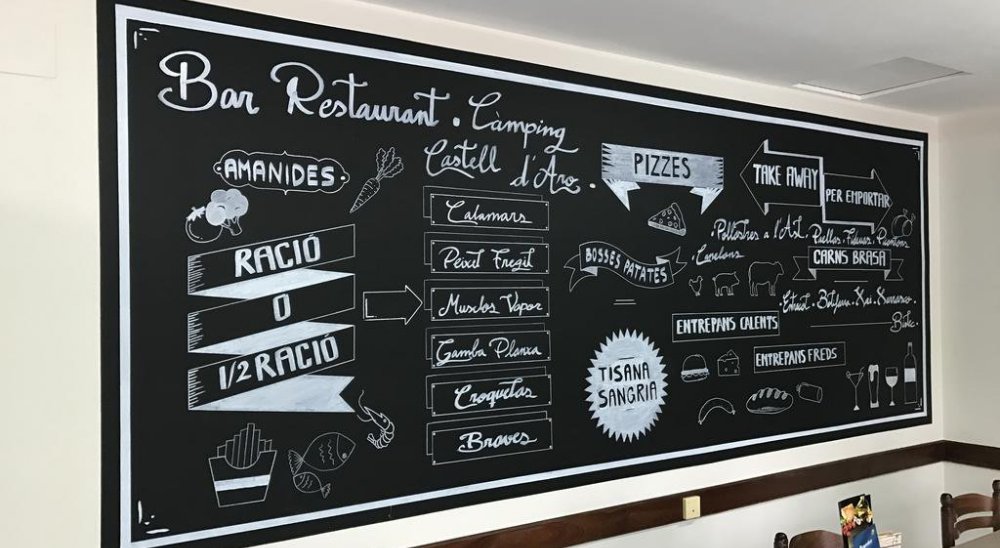 Bar Restaurant . Càmping
Castell d'Aro.
AMANIDES
RACIÓ
O
1/2 RACIÓ
Calamars
Peixit Fregit
Musclos Vapor
Gamba Planxa
Croquetas
Braves
PIZZES
BOSSES PATATES
TISANA
SANGRIA
TAKE AWAY
PER EMPORTAR
.Pollastres a l'Ast. Paellas. Fideues.
.Canelons
CARNS BRASA
ENTREPANS CALENTS
ENTREPANS FREDS